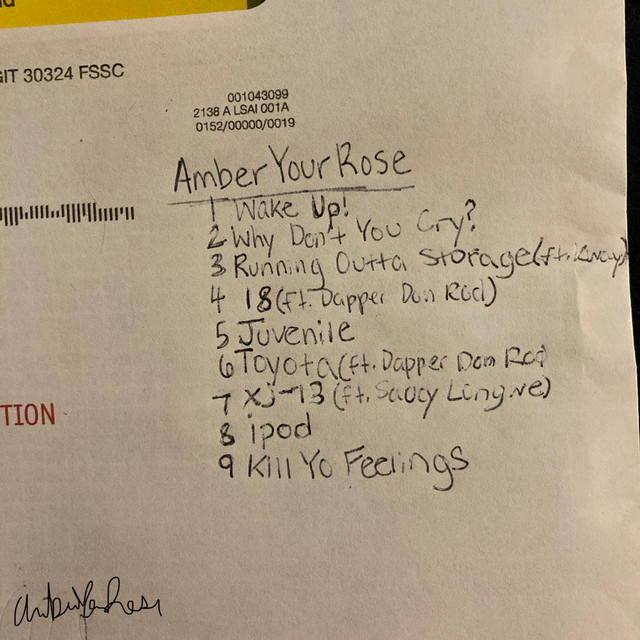 GIT 30324 FSSC
001043099
2138 A LSAI 001A
0152/00000/0019
Amber Your Rose
1 Wake Up!
2 Why Don't You Cry?
3 Running Outta Storage(ft.
4 18(ft. Dapper Don Rod)
5 Juvenile
6 Toyota(ft. Dapper Dom Rod
7 Xj-13 (ft. Saucy
TION
8 ipod
9 Kill Yo Feelings